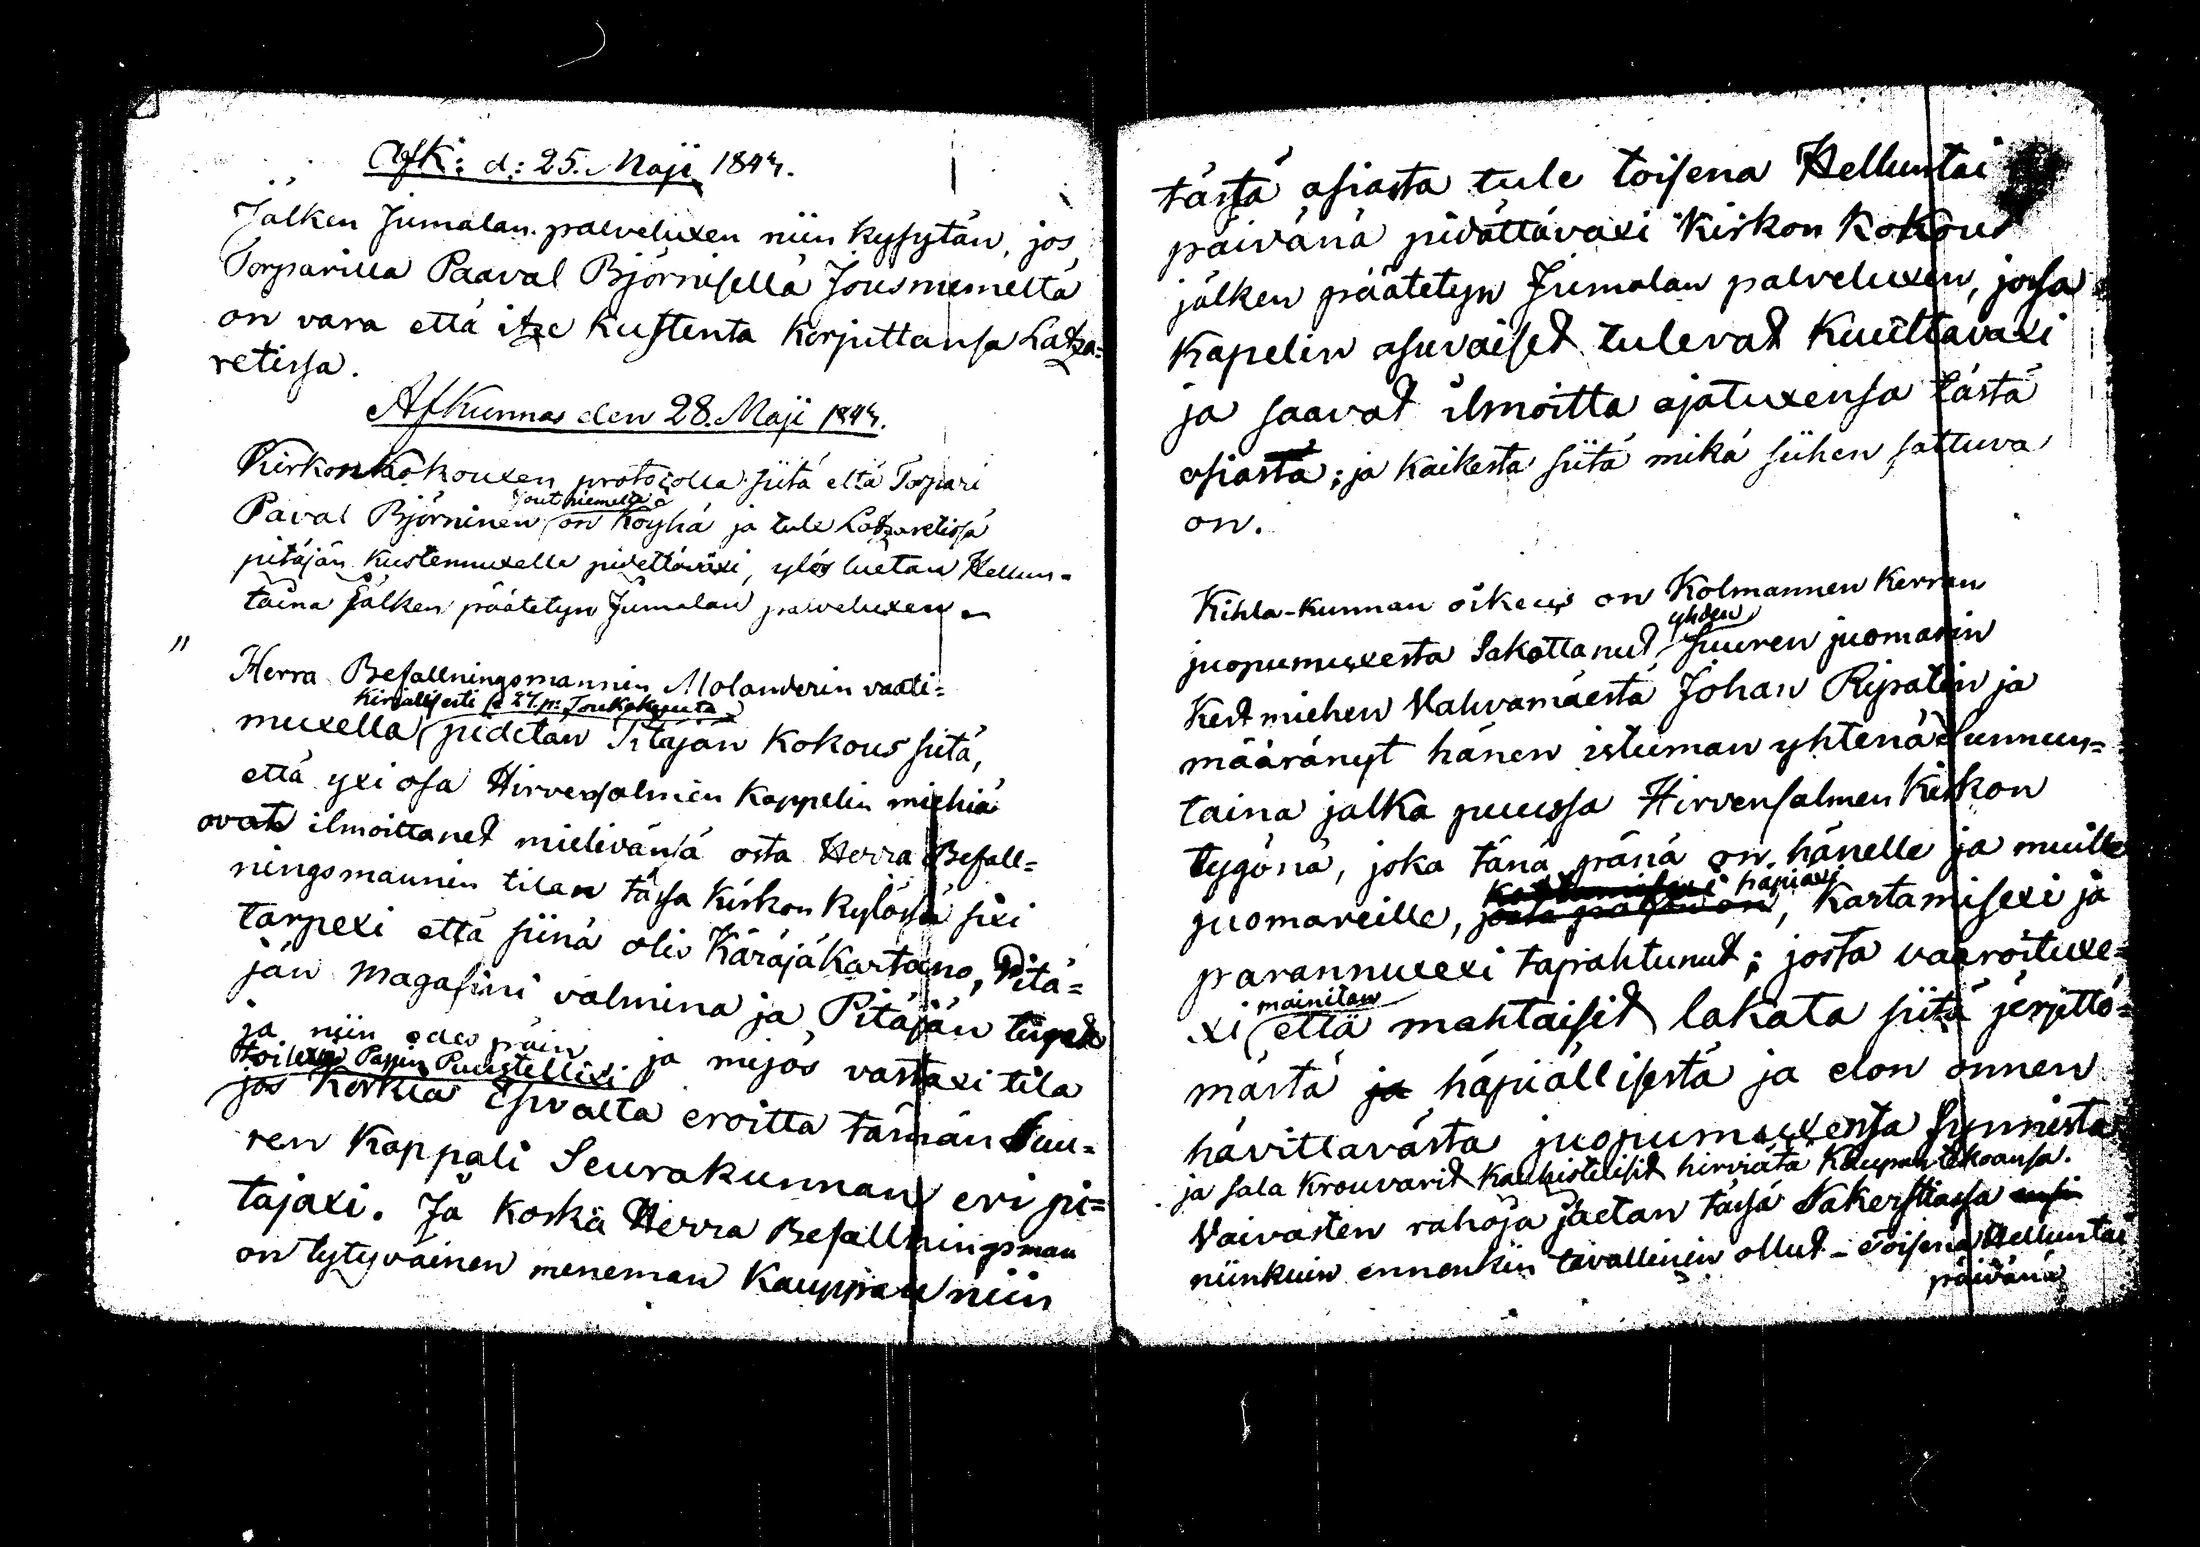 Afk: d: 25. Maji 1844.
Jälken Jumalan palveluxen niin kysytän, jos
Torparilla Paaval Björnisellä Jousniemeltä
on vara että itze kustenta korjuttansa Latza-
retissa.
Afkunnas den 28. Maji 1844.
Kirkon kokouxen protocolla siitä että Torpari
Jout niemeltä
Paval Björninen on köyhä ja tule Latzaretissä
pitäjän kustennuxella pidettäväxi, ylös luetan Hellun-
taina jälken päätetyn Jumalan palveluxen.
" Herra Befallningsmannin Molanderin vaati-
kirjallisesti 27 p: Toukokuuta
muxella pidetän Pitäjän kokous siitä,
että yxi osa Hirvensalmen kappelin miehiä
ovat ilmoittanet mielivänsä osta Herra Befall-
ningsmannin tilan tässä kirkon kylässä sixi
tarpexi että siinä olis Käräjäkartano, Pitä-
jän magasini valmina ja Pitäjän
ja niin edes päin ja mijös vastaxi tila
Papin Puustellixi
jos Korkia Esivalta eroitta tämän Suu-
ren Kappali Seurakunnan eri pi-
täjäxi. Ja koska Herra Befallningsman
on tytyväinen meneman kauppan niin
tästä asiasta tule toisena Helluntai
päivänä pidättäväxi Kirkon Kokous
jälken päätetyn Jumalan palveluxen, josa
Kapelin asuvaiset tulevat kuultavaxi
ja saavat ilmoitta ajatuxensa tästä
asiasta; ja kaikesta siitä mikä siihen sattuva
on.
Kihla-kunnan oikeus on kolmannen kerran
yhden
juopumuxesta sakottanut suuren juomarin
Kestmiehen Vahvamäestä Johan Ripatin ja
määränyt hänen istuman yhtenä Sunnun-
taina jalka puussa Hirvensalmen kirkon
tygönä, joka tänä pänä on hänelle ja muille
häpiäxi
juomareille, kartamisexi ja
parannuxexi tapahtunut; josta varoituxe-
mainitan
xi että mahtaisit lakata siitä järjettö-
mästä ja häpiällisestä ja elon onnen
hävittävästä juopumuxensa synnistä
ja sala krouvarit kauhistelisit hirviätä kaupan tekoansa.
Vaivasten rahoja jaetan tässä Sakerstiassa
niinkuin ennenkin tavallinen ollut - toisena Helluntai
päivänä